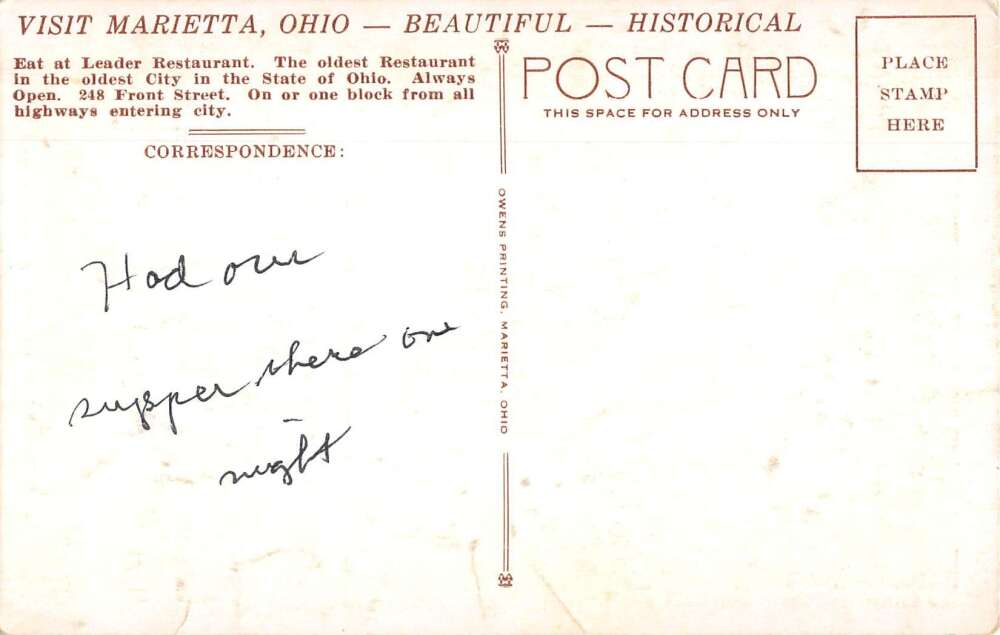 VISIT MARIETTA, OHIO — BEAUTIFUL — HISTORICAL
Eat at Leader Restaurant. The oldest Restaurant
in the oldest City in the State of Ohio. Always
Open. 248 Front Street. On or one block from all
highways entering city.
CORRESPONDENCE:
Had our
supper there one
night
OWENS PRINTING, MARIETTA, OHIO
POST CARD
THIS SPACE FOR ADDRESS ONLY
PLACE
STAMP
HERE